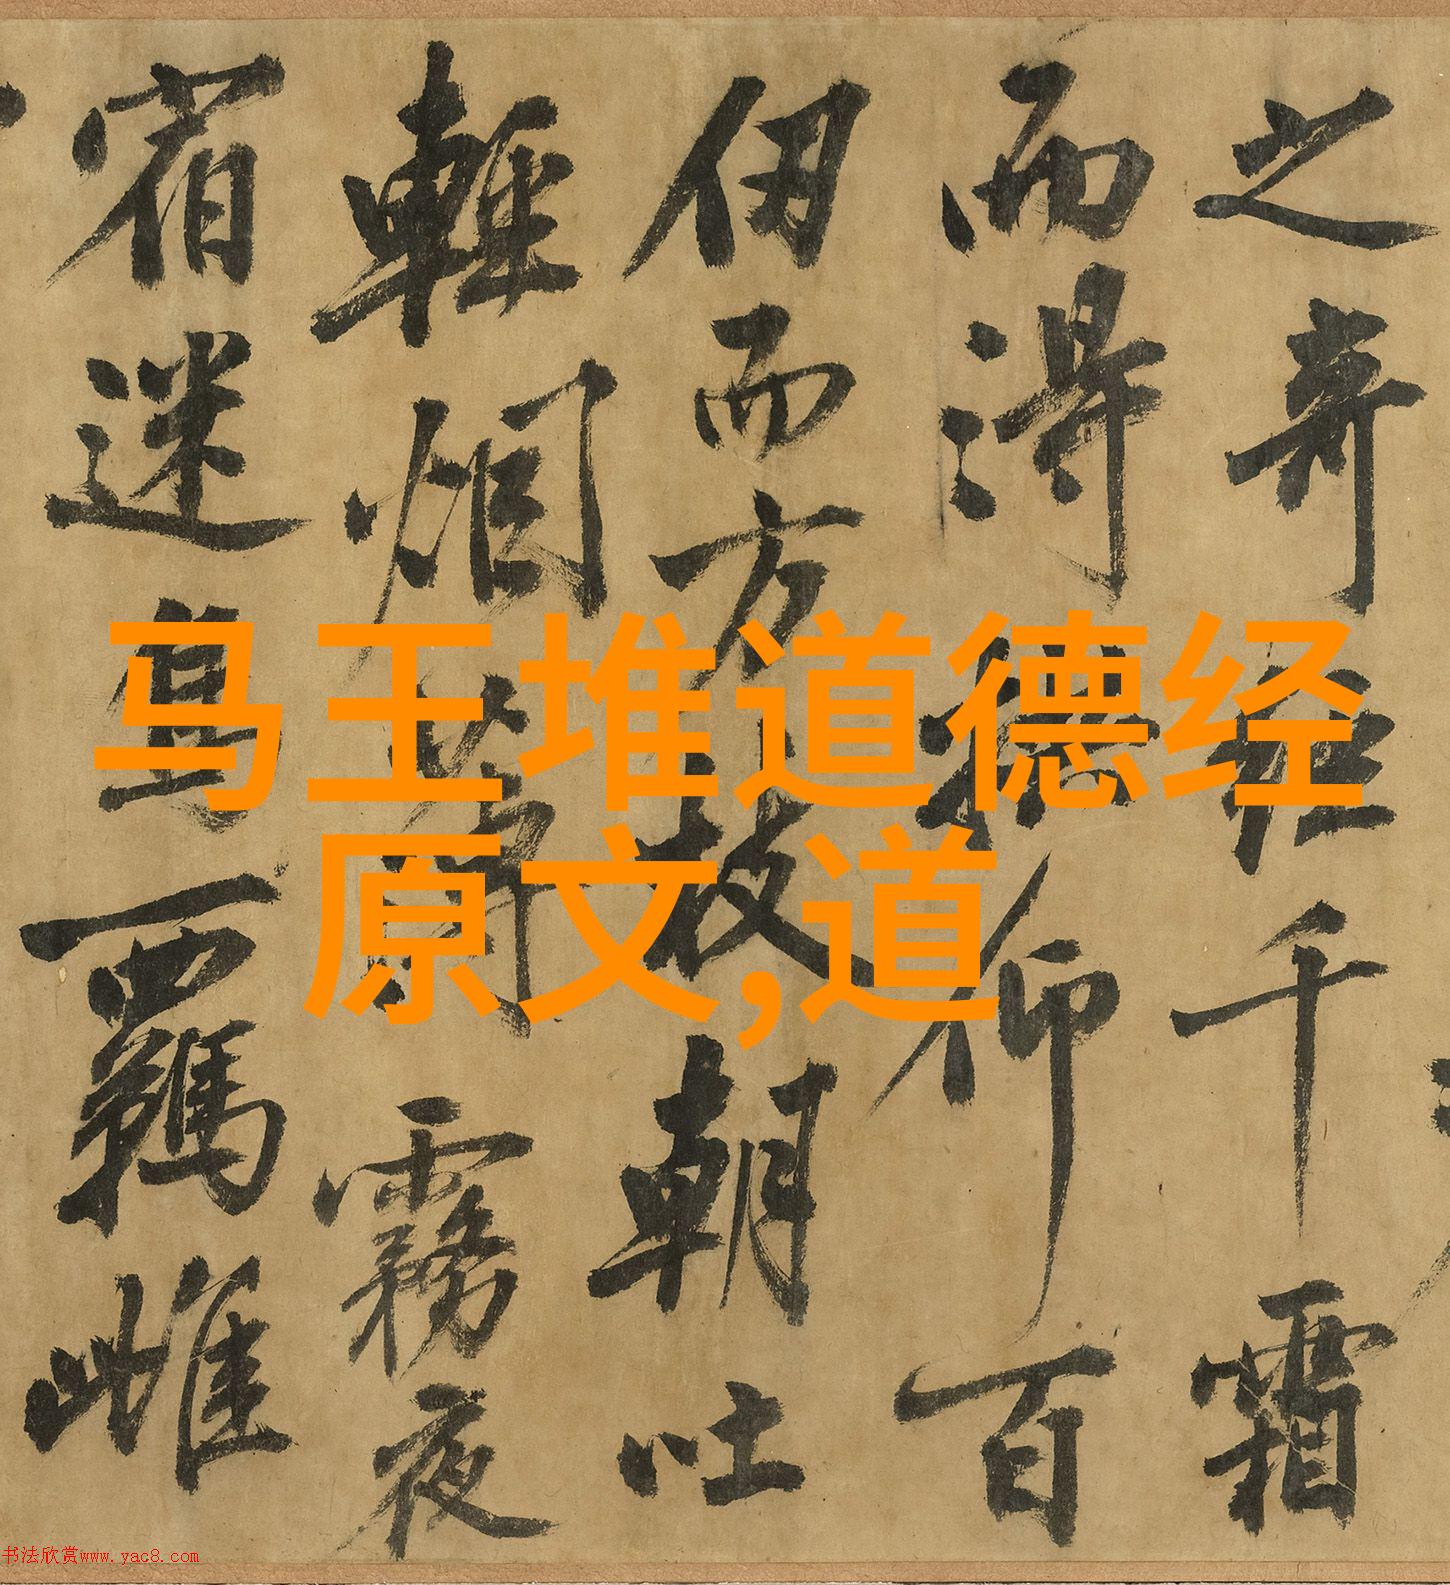 之奇經千霜
而得仰百
仞而方枝朝吐
輕烟薄霧夜
宿迷鳥羈雌
马王堆道德经
原文,道
书法欣赏www.yac8.com